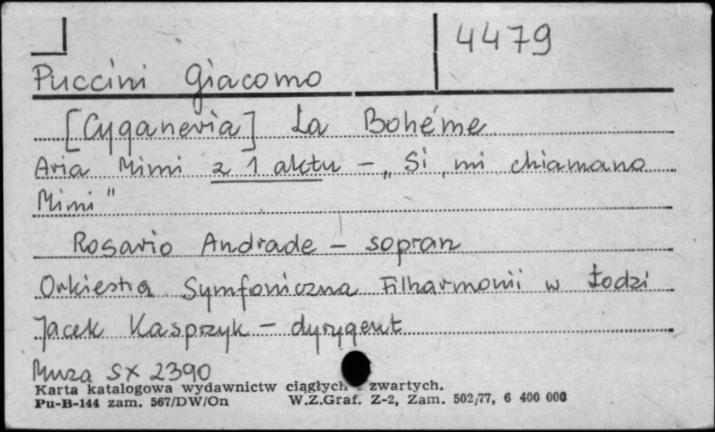 4479
Puccini Giacomo
[Cyganeria] La Bohéme
Aria Mimi z 1 aktu – „Si, mi chiamano
Mimi"
Rosario Andrade – sopran
Orkiestra Symfoniczna Filharmonii w Łodzi
Jacek Kasprzyk – dyrygent
Muza SX 2390
Karta katalogowa wydawnictw ciągłych zwartych.
Pu-B-144 zam. 567/DW/On W.Z.Graf. Z-2, Zam. 502/77, 6 400 000